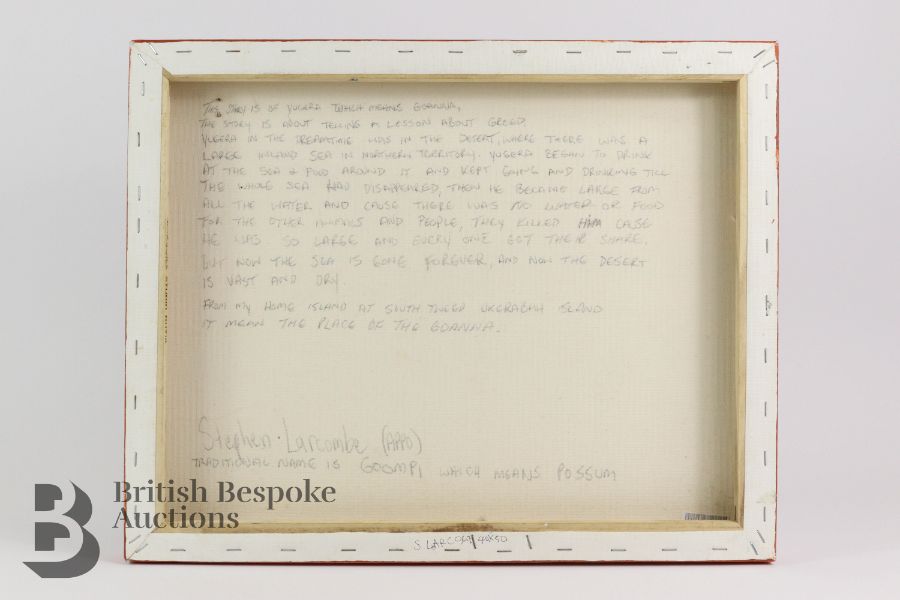 THE STORY IS OF YUGERA WHICH MEANS GOANNA,
THE STORY IS ABOUT TELLING A LESSON ABOUT GREED.
YUGERA IN THE DREAMTIME WAS IN THE DESERT, WHERE THERE WAS A
LARGE INLAND SEA IN NORTHERN TERRITORY. YUGERA BEGAN TO DRINK
AT THE SEA & FOOD AROUND IT AND KEPT GOING AND DRINKING TILL
THE WHOLE SEA HAD DISAPPEARED, THEN HE BECAME LARGE FROM
ALL THE WATER AND CAUSE THERE WAS NO WATER OR FOOD
FOR THE OTHER ANIMALS AND PEOPLE, THEY KILLED HIM CAUSE
HE WAS SO LARGE AND EVERY ONE GOT THEIR SHARE.
BUT NOW THE SEA IS GONE FOREVER, AND NOW THE DESERT
IS VAST AND DRY.
FROM MY HOME ISLAND AT SOUTH TWEED UKERABAH ISLAND
IT MEAN THE PLACE OF THE GOANNA.
Stephen Larcombe
TRADITIONAL NAME IS GOOMPI WHICH MEANS POSSUM
British Bespoke
Auctions
S. LARCOMBE 40x50